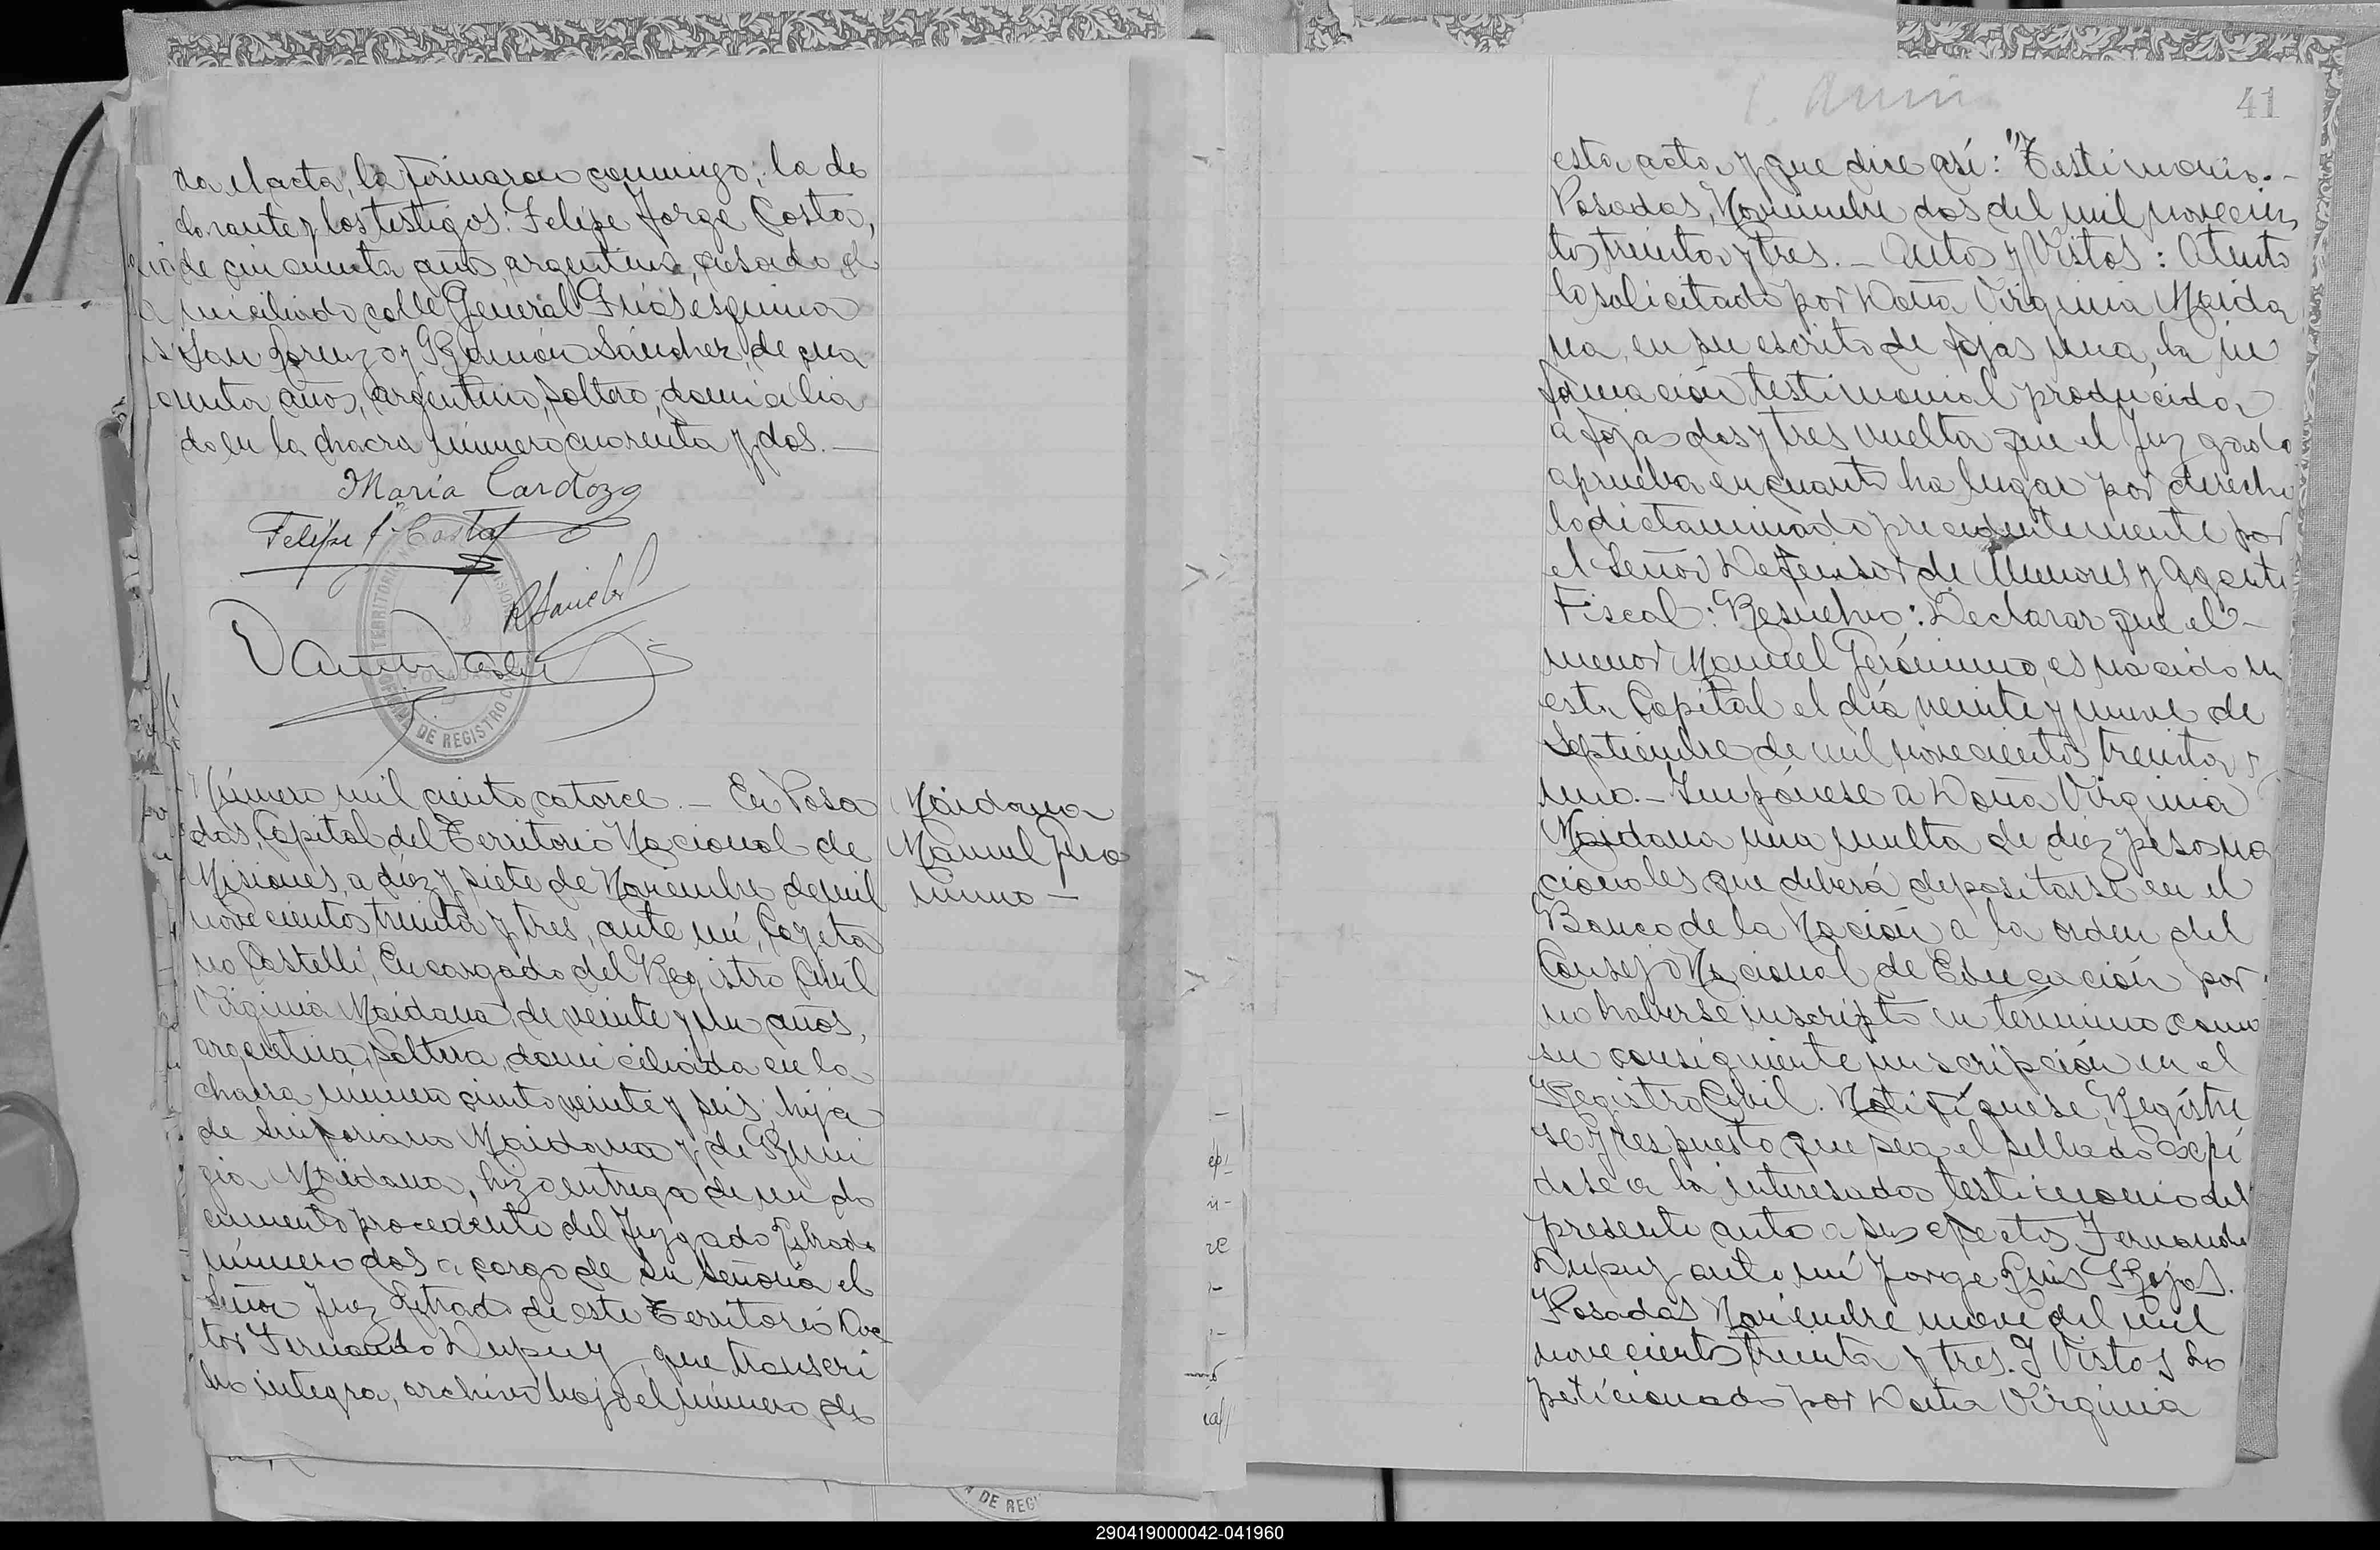 da el acta, la firmaron conmigo, la de
clarante y los testigos: Felipe Jorge Costa,
de cincuenta años, argentino, casado, do
miciliado calle General Frías esquina
San Lorenzo y Ramón Sánchez, de cua
renta años, argentino, soltero, domicilia
do en la chacra número cuarenta y dos.—
María Cardozo
Felipe J. Costa
RSanchez
REGISTRO
Número mil ciento catorce.— En Posa
das, Capital del Territorio Nacional de
Misiones, a diez y siete de Noviembre de mil
novecientos treinta y tres, ante mí, Cayeta
no Castelli, Encargado del Registro Civil
Virginia Maidana, de veinte y un años,
argentina, soltera, domiciliada en la
chacra número ciento veinte y seis, hija
de Sinforiano Maidana y de Remi
gia Maidana, hizo entrega de un do
cumento procedente del Juzgado Letrado
número dos a cargo de su señoria el
Señor Juez Letrado de este Territorio Doc
tor Fernando Dupuy, que transcri
bo integra, archivo bajo el número de
Maidana
Manuel Jero
nimo —
41
esta acta y que dice así: "Testimonio.—
Posadas, Noviembre dos del mil novecien
tos treinta y tres.— Autos y Vistos: Atento
lo solicitado por Doña Virginia Maida
na, en su escrito de fojas una, la in
formación testimonial producida
a fojas dos y tres vuelta que el Juzgado
aprueba en cuanto ha lugar por derecho
lo dictaminado precedentemente por
el Señor Defensor de Menores y Agente
Fiscal: Resuelvo: Declarar que el —
menor Manuel Gerónimo, es nacido en
esta Capital el día veinte y nueve de
Septiembre de mil novecientos treinta y
uno.— Impónese a Doña Virginia
Maidana una multa de diez pesos na
cionales que deberá depositarse en el
Banco de la Nación a la orden del
Consejo Nacional de Educación por
no haberse inscripto en término como
su consiguiente inscripción en el
Registro Civil. Notifíquese, Regístre
se y respuesto que sea el sellado expí
dase a la interesada testimonio del
presente auto a sus efectos. Fernando
Dupuy ante mí Jorge Luis Rojas.
Posadas Noviembre nueve del mil
novecientos treinta y tres. Y Vistos Lo
peticionado por Doña Virginia
DE REGI
290419000042-041960